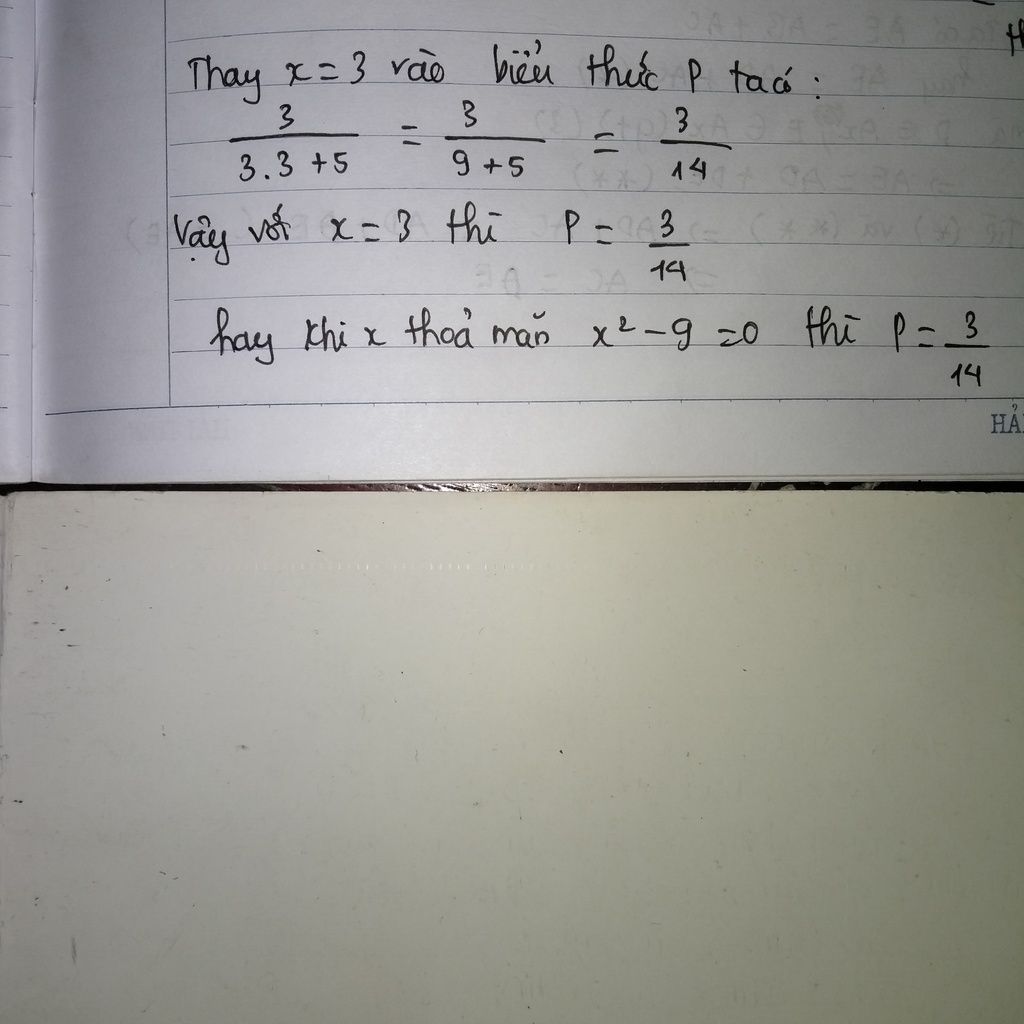 Thay x = 3 vào biểu thức P ta có :
3 / 3.3 + 5 = 3 / 9 + 5 = 3 / 14
Vậy với x = 3 thì P = 3 / 14
hay khi x thoả mãn x² - 9 = 0 thì P = 3 / 14
HẢI